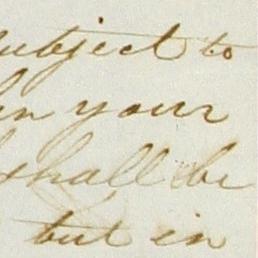 subject to
in your
shall be
but in